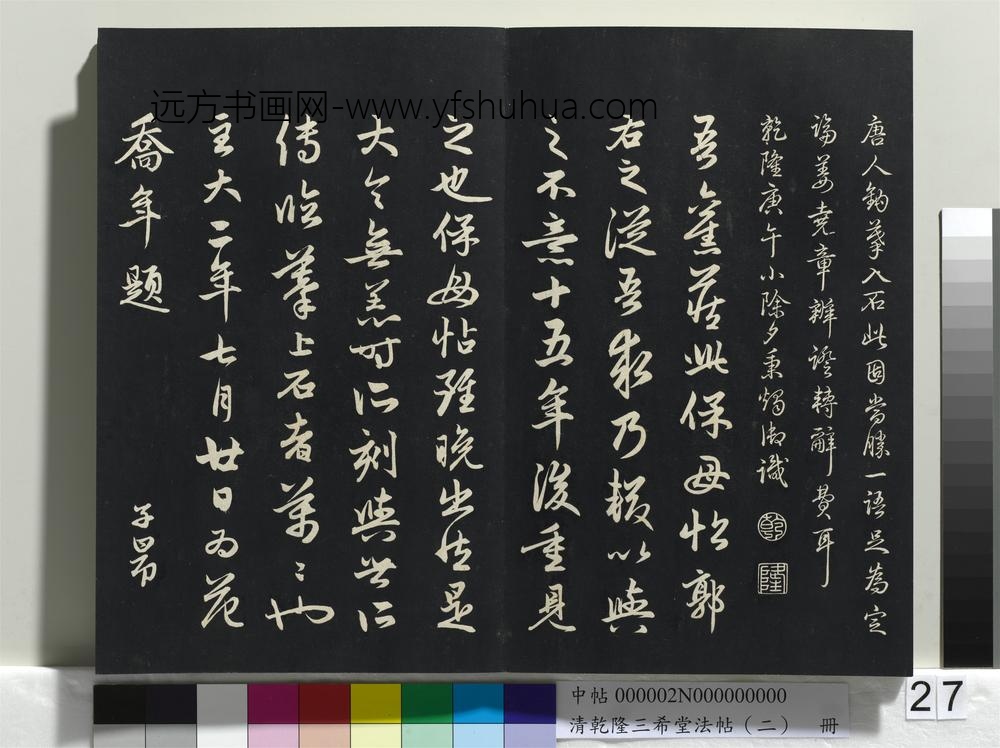 远方书画网-www.yfshuhua.com
唐人鈎摹入石此固當勝一語足為定
論姜堯章辨證轉辭費耳
乾隆庚午小除夕秉燭御識
乾
隆
吾舊藏此保母帖郭
右之從吾求乃輟以與
之不意十五年後重見
之也保母帖雖晚出然是
大令無恙時所刻與世所
傳臨摹上石者萬萬也
至大二年七月廿日為范
喬年題
子昂
中帖 000002N000000000
清乾隆三希堂法帖（二） 册
27